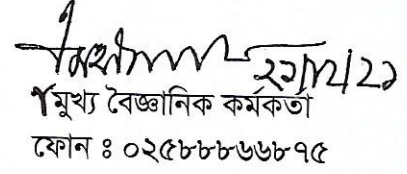 মুখ্য বৈজ্ঞানিক কর্মকর্তা
ফোন ঃ ০২৫৮৮৮৬৬৮৭৫